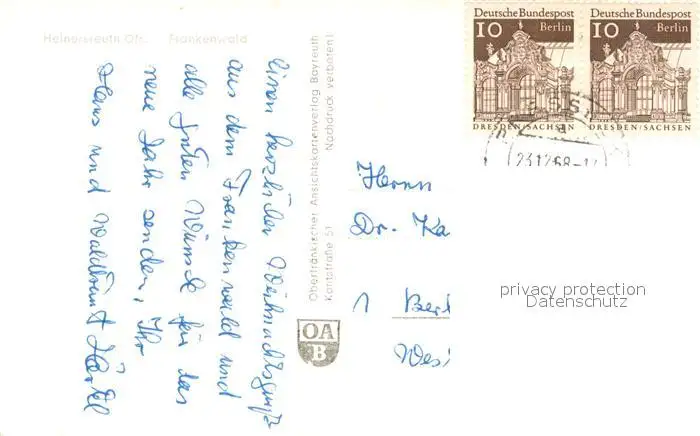 Heinersreuth Ofr. Frankenwald
Einen herzlichen Weihnachtsgruß
aus dem Frankenwald und
alle guten Wünsche für das
neue Jahr senden, Ihr
Hans und Waldtraut
Oberfränkischer Ansichtskartenverlag Bayreuth
Kantstraße 51 Nachdruck verboten!
OA
B
Deutsche Bundespost
10 Berlin
DRESDEN/SACHSEN
Deutsche Bundespost
10 Berlin
DRESDEN/SACHSEN
23.12.68-1
Herrn
Dr. Ka
1 Berl
Wes
privacy protection
Datenschutz